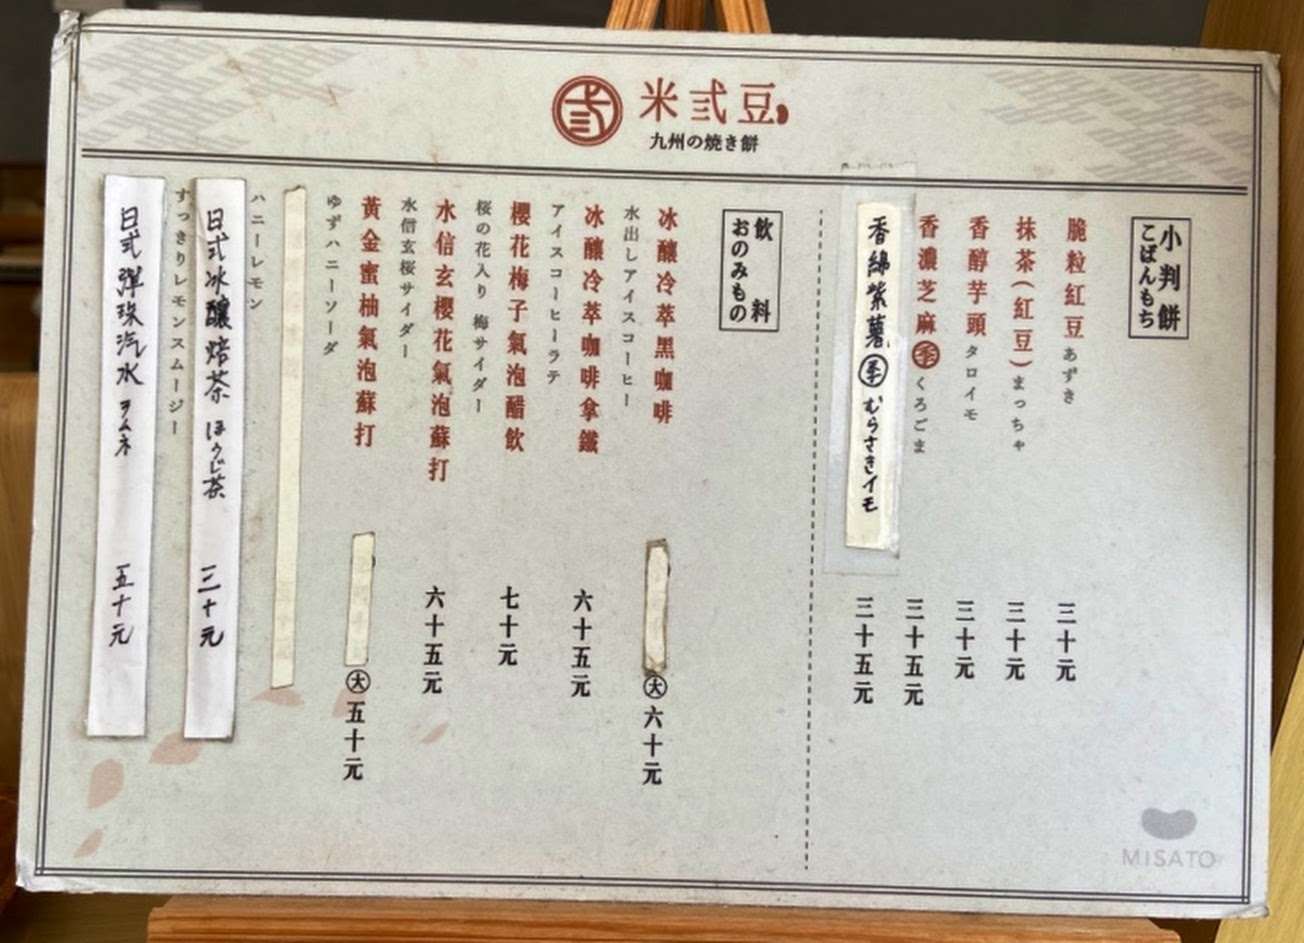 弐
米弐豆
九州の焼き餅
小判餅
こばんもち
脆粒紅豆 あずき 三十元
抹茶(紅豆) まっちゃ 三十元
香醇芋頭 タロイモ 三十元
香濃芝麻 季 くろごま 三十五元
香綿紫薯 季 むらさきイモ 三十五元
飲料
おのみもの
冰釀冷萃黑咖啡 大 六十元
水出しアイスコーヒー
冰釀冷萃咖啡拿鐵 六十五元
アイスコーヒーラテ
櫻花梅子氣泡醋飲 七十元
桜の花入り 梅サイダー
水信玄櫻花氣泡蘇打 六十五元
水信玄桜サイダー
黃金蜜柚氣泡蘇打 大 五十元
ゆずハニーソーダ
ハニーレモン
日式冰釀焙茶 ほうじ茶 三十元
すっきりレモンスムージー
日式彈珠汽水 ラムネ 五十元
MISATO